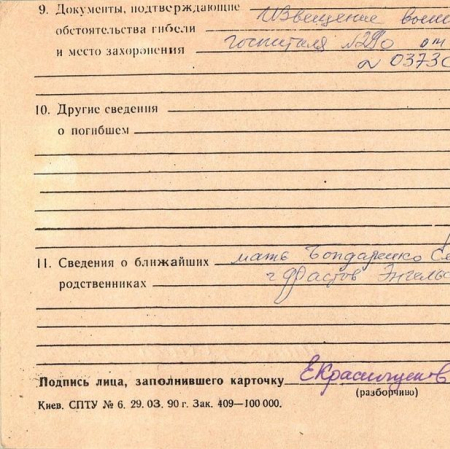 9. Документы, подтверждающие Извещение
обстоятельства гибели госпиталя №290 от
и место захоронения № 0373
10. Другие сведения
о погибшем
11. Сведения о ближайших мать Бондаренко
родственниках г. Фастов Энгельс
Подпись лица, заполнившего карточку
(разборчиво)
Киев. СПТУ № 6. 29. 03. 90 г. Зак. 409—100 000.